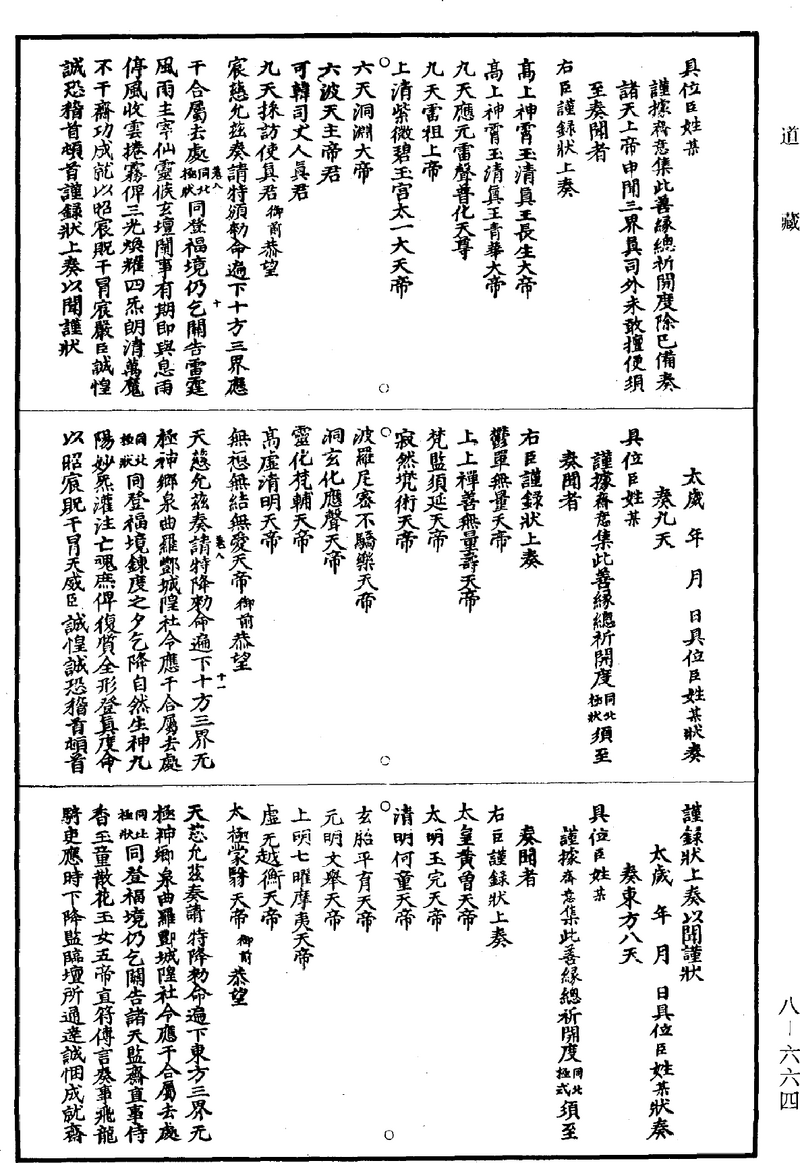 道藏
具位臣姓某
謹據齋意集此善緣總祈開度除已備奏
諸天上帝申聞三界真司外未敢擅便須
至奏聞者
右臣謹錄狀上奏
高上神霄玉清真王長生大帝
高上神霄玉清真王青華大帝
九天應元雷聲普化天尊
九天雷祖上帝
上清紫微碧玉宮太一大天帝
六天洞淵大帝
六波天主帝君
可韓司丈人真君
九天採訪使真君御前恭望
宸慈允茲奏請特頒勑命遍下十方三界應
干合屬去處同北極狀同登福境仍乞關告雷霆
風雨主宰仙靈候玄壇開事有期即與息雨
停風收雲捲霧俾三光煥耀四炁朗清萬魔
不干齋功成就以昭宸貺干冒宸嚴臣誠惶
誠恐稽首頓首謹錄狀上奏以聞謹狀
卷八
十
太歲年月日具位臣姓某狀奏
奏九天
具位臣姓某
謹據齋意集此善緣總祈開度同北極狀須至
奏聞者
右臣謹錄狀上奏
鬱單無量天帝
上上禪善無量壽天帝
梵監須延天帝
寂然兜術天帝
波羅尼密不驕樂天帝
洞玄化應聲天帝
靈化梵輔天帝
高虛清明天帝
無想無結無愛天帝御前恭望
天慈允茲奏請特降勑命遍下十方三界无
極神鄉泉曲羅酆城隍社令應干合屬去處
同北極狀同登福境鍊度之夕乞降自然生神九
陽妙炁灌注亡魂庶俾復質全形登真度命
以昭宸貺干冒天威臣誠惶誠恐稽首頓首
卷八
十一
謹錄狀上奏以聞謹狀
太歲年月日具位臣姓某狀奏
奏東方八天
具位臣姓某
謹據齋意集此善緣總祈開度同北極式須至
奏聞者
右臣謹錄狀上奏
太皇黃曾天帝
太明玉完天帝
清明何童天帝
玄胎平育天帝
元明文舉天帝
上明七曜摩夷天帝
虛无越衡天帝
太極蒙翳天帝御前恭望
天慈允茲奏請特降勑命遍下東方三界无
極神鄉泉曲羅酆城隍社令應干合屬去處
同北極狀同登福境仍乞關告諸天監齋直事侍
香玉童散花玉女五帝直符傳言奏事飛龍
騎吏應時下降監臨壇所通達誠悃成就齋
八–六六四